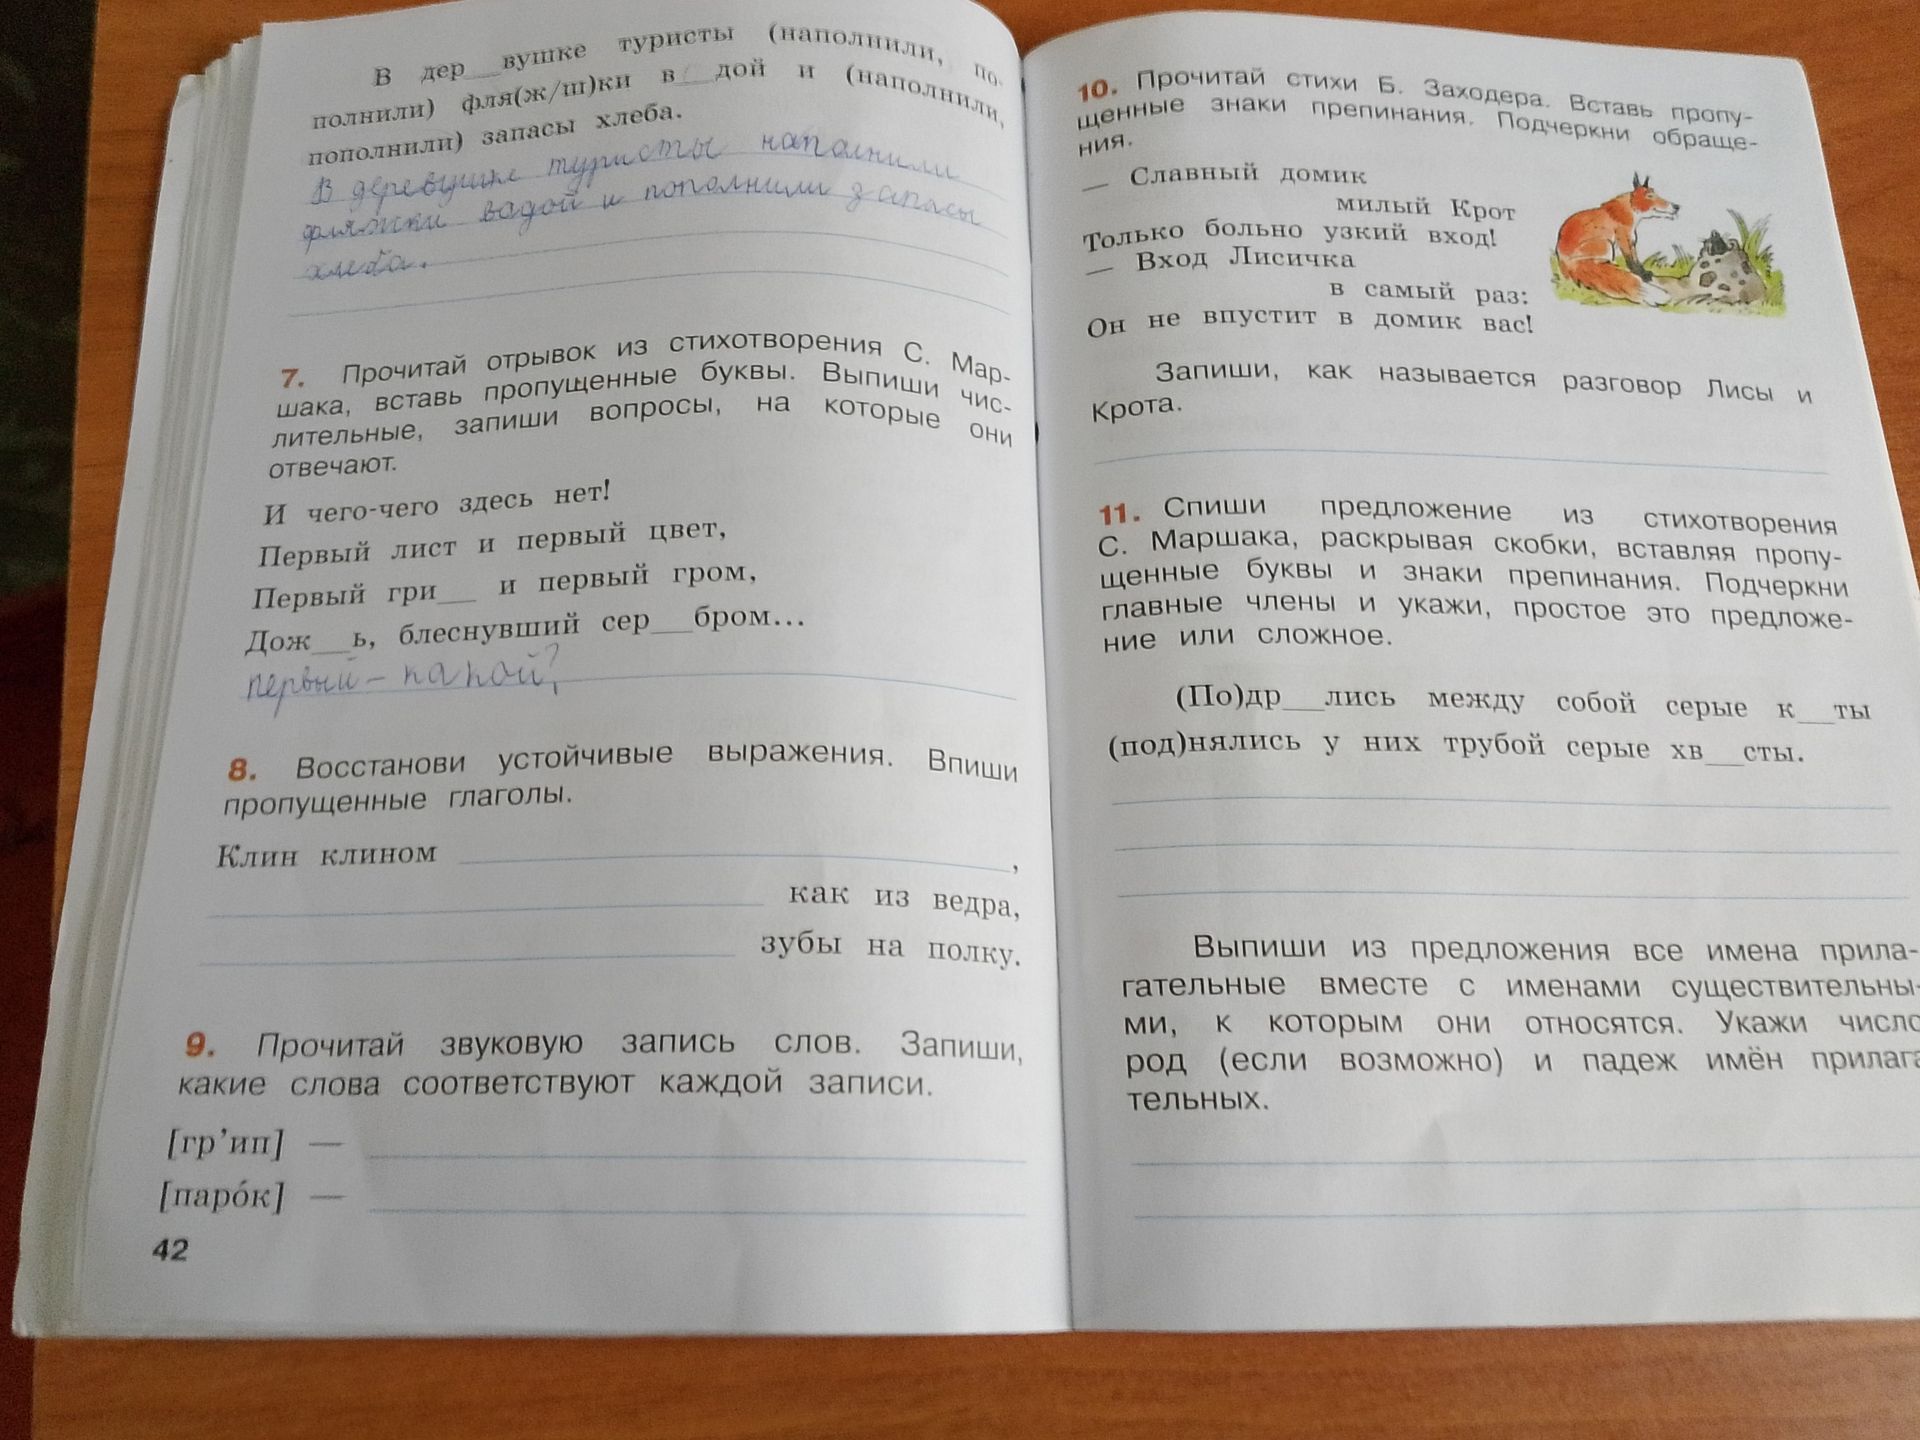 В дер__вушке туристы (наполнили, по-
полнили) фля(ж/ш)ки в__дой и (наполнили,
пополнили) запасы хлеба.
В деревушке туристы наполнили
фляжки водой и пополнили запасы
хлеба.
7. Прочитай отрывок из стихотворения С. Мар-
шака, вставь пропущенные буквы. Выпиши чис-
лительные, запиши вопросы, на которые они
отвечают.
И чего-чего здесь нет!
Первый лист и первый цвет,
Первый гри__ и первый гром,
Дож__ь, блеснувший сер__бром...
первый – какой?
8. Восстанови устойчивые выражения. Впиши
пропущенные глаголы.
Клин клином ,
как из ведра,
зубы на полку.
9. Прочитай звуковую запись слов. Запиши,
какие слова соответствуют каждой записи.
[гр’ип] —
[паро́к] —
42
10. Прочитай стихи Б. Заходера. Вставь пропу-
щенные знаки препинания. Подчеркни обраще-
ния.
— Славный домик
милый Крот
Только больно узкий вход!
— Вход Лисичка
в самый раз:
Он не впустит в домик вас!
Запиши, как называется разговор Лисы и
Крота.
11. Спиши предложение из стихотворения
С. Маршака, раскрывая скобки, вставляя пропу-
щенные буквы и знаки препинания. Подчеркни
главные члены и укажи, простое это предложе-
ние или сложное.
(По)др__лись между собой серые к__ты
(под)нялись у них трубой серые хв__сты.
Выпиши из предложения все имена прила-
гательные вместе с именами существительны-
ми, к которым они относятся. Укажи число
род (если возможно) и падеж имён прилага
тельных.